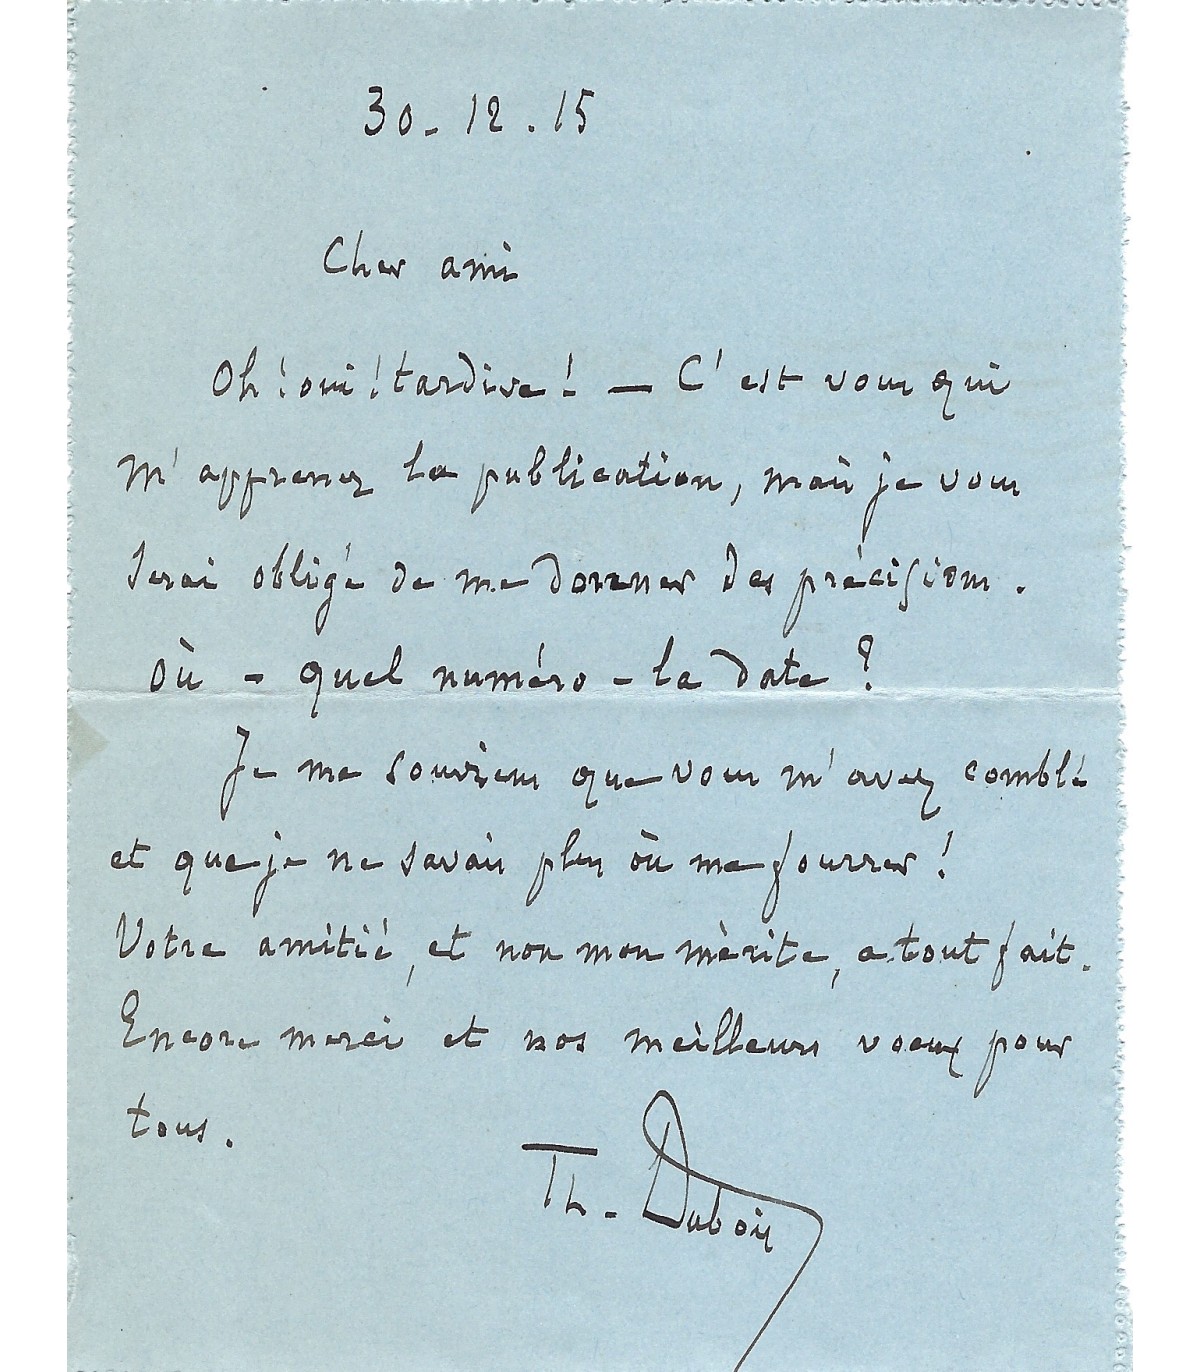 30 - 12 . 15
Cher ami
Oh ! oui ! tardive ! — C'est vous qui
m'apprenez la publication, mais je vous
serai obligé de me donner des précisions.
Où - quel numéro - la date ?
Je me souviens que vous m'avez comblé
et que je ne savais plus où me fourrer !
Votre amitié, et non mon mérite, a tout fait.
Encore merci et nos meilleurs voeux pour
tous.
Th. Dubois